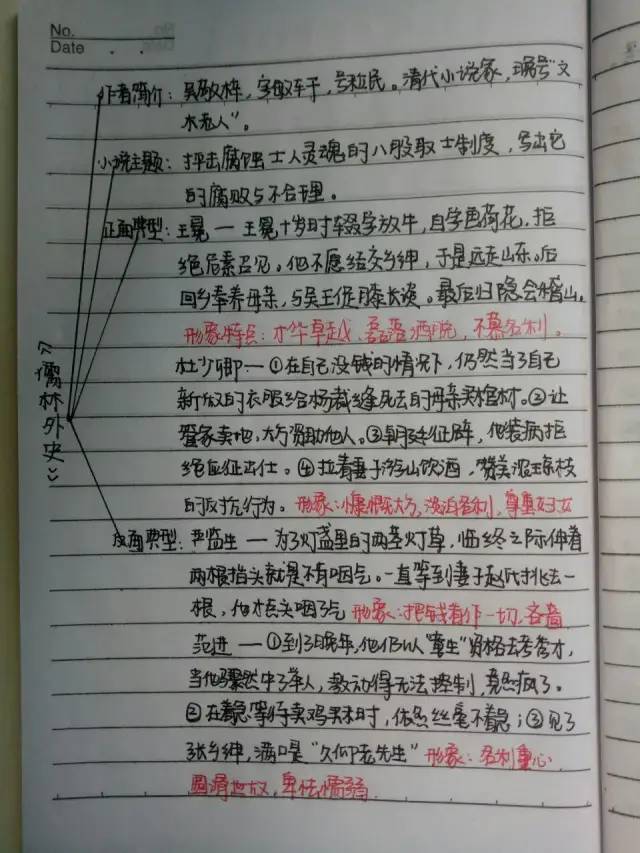 No.
Date . .
作者简介：吴敬梓，字敏轩，号粒民。清代小说家，晚号"文
木老人"。
小说主题：抨击腐蚀士人灵魂的八股取士制度，写出它
的腐败与不合理。
正面典型：王冕 — 王冕十岁时辍学放牛，自学画荷花，拒
绝危素召见。他不愿结交乡绅，于是远走山东。后
回乡奉养母亲，与吴王促膝长谈。最后归隐会稽山。
形象特点：才华卓越、磊落洒脱，不慕名利。
杜少卿— ①在自己没钱的情况下，仍然当了自己
新做的衣服给杨裁缝死去的母亲买棺材。②让
管家卖地，大方资助他人。③朝廷征辟，他装病拒
绝应征出仕。④拉着妻子游山饮酒，赞美沈琼枝
的反抗行为。形象：慷慨大方，淡泊名利，尊重妇女
《儒林外史》
反面典型：严监生 — 为了灯盏里的两茎灯草，临终之际伸着
两根指头就是不肯咽气。一直等到妻子赵氏挑去一
根，他才点头咽了气 形象：把钱看作一切，吝啬
范进 — ①到了晚年，他仍以"童生"资格去考秀才，
当他骤然中了举人，激动得无法控制，竟然疯了。
②在着急等待卖鸡买米时，依然丝毫不着急；③见了
张乡绅，满口是"久仰老先生" 形象：名利重心
圆滑世故，卑怯懦弱